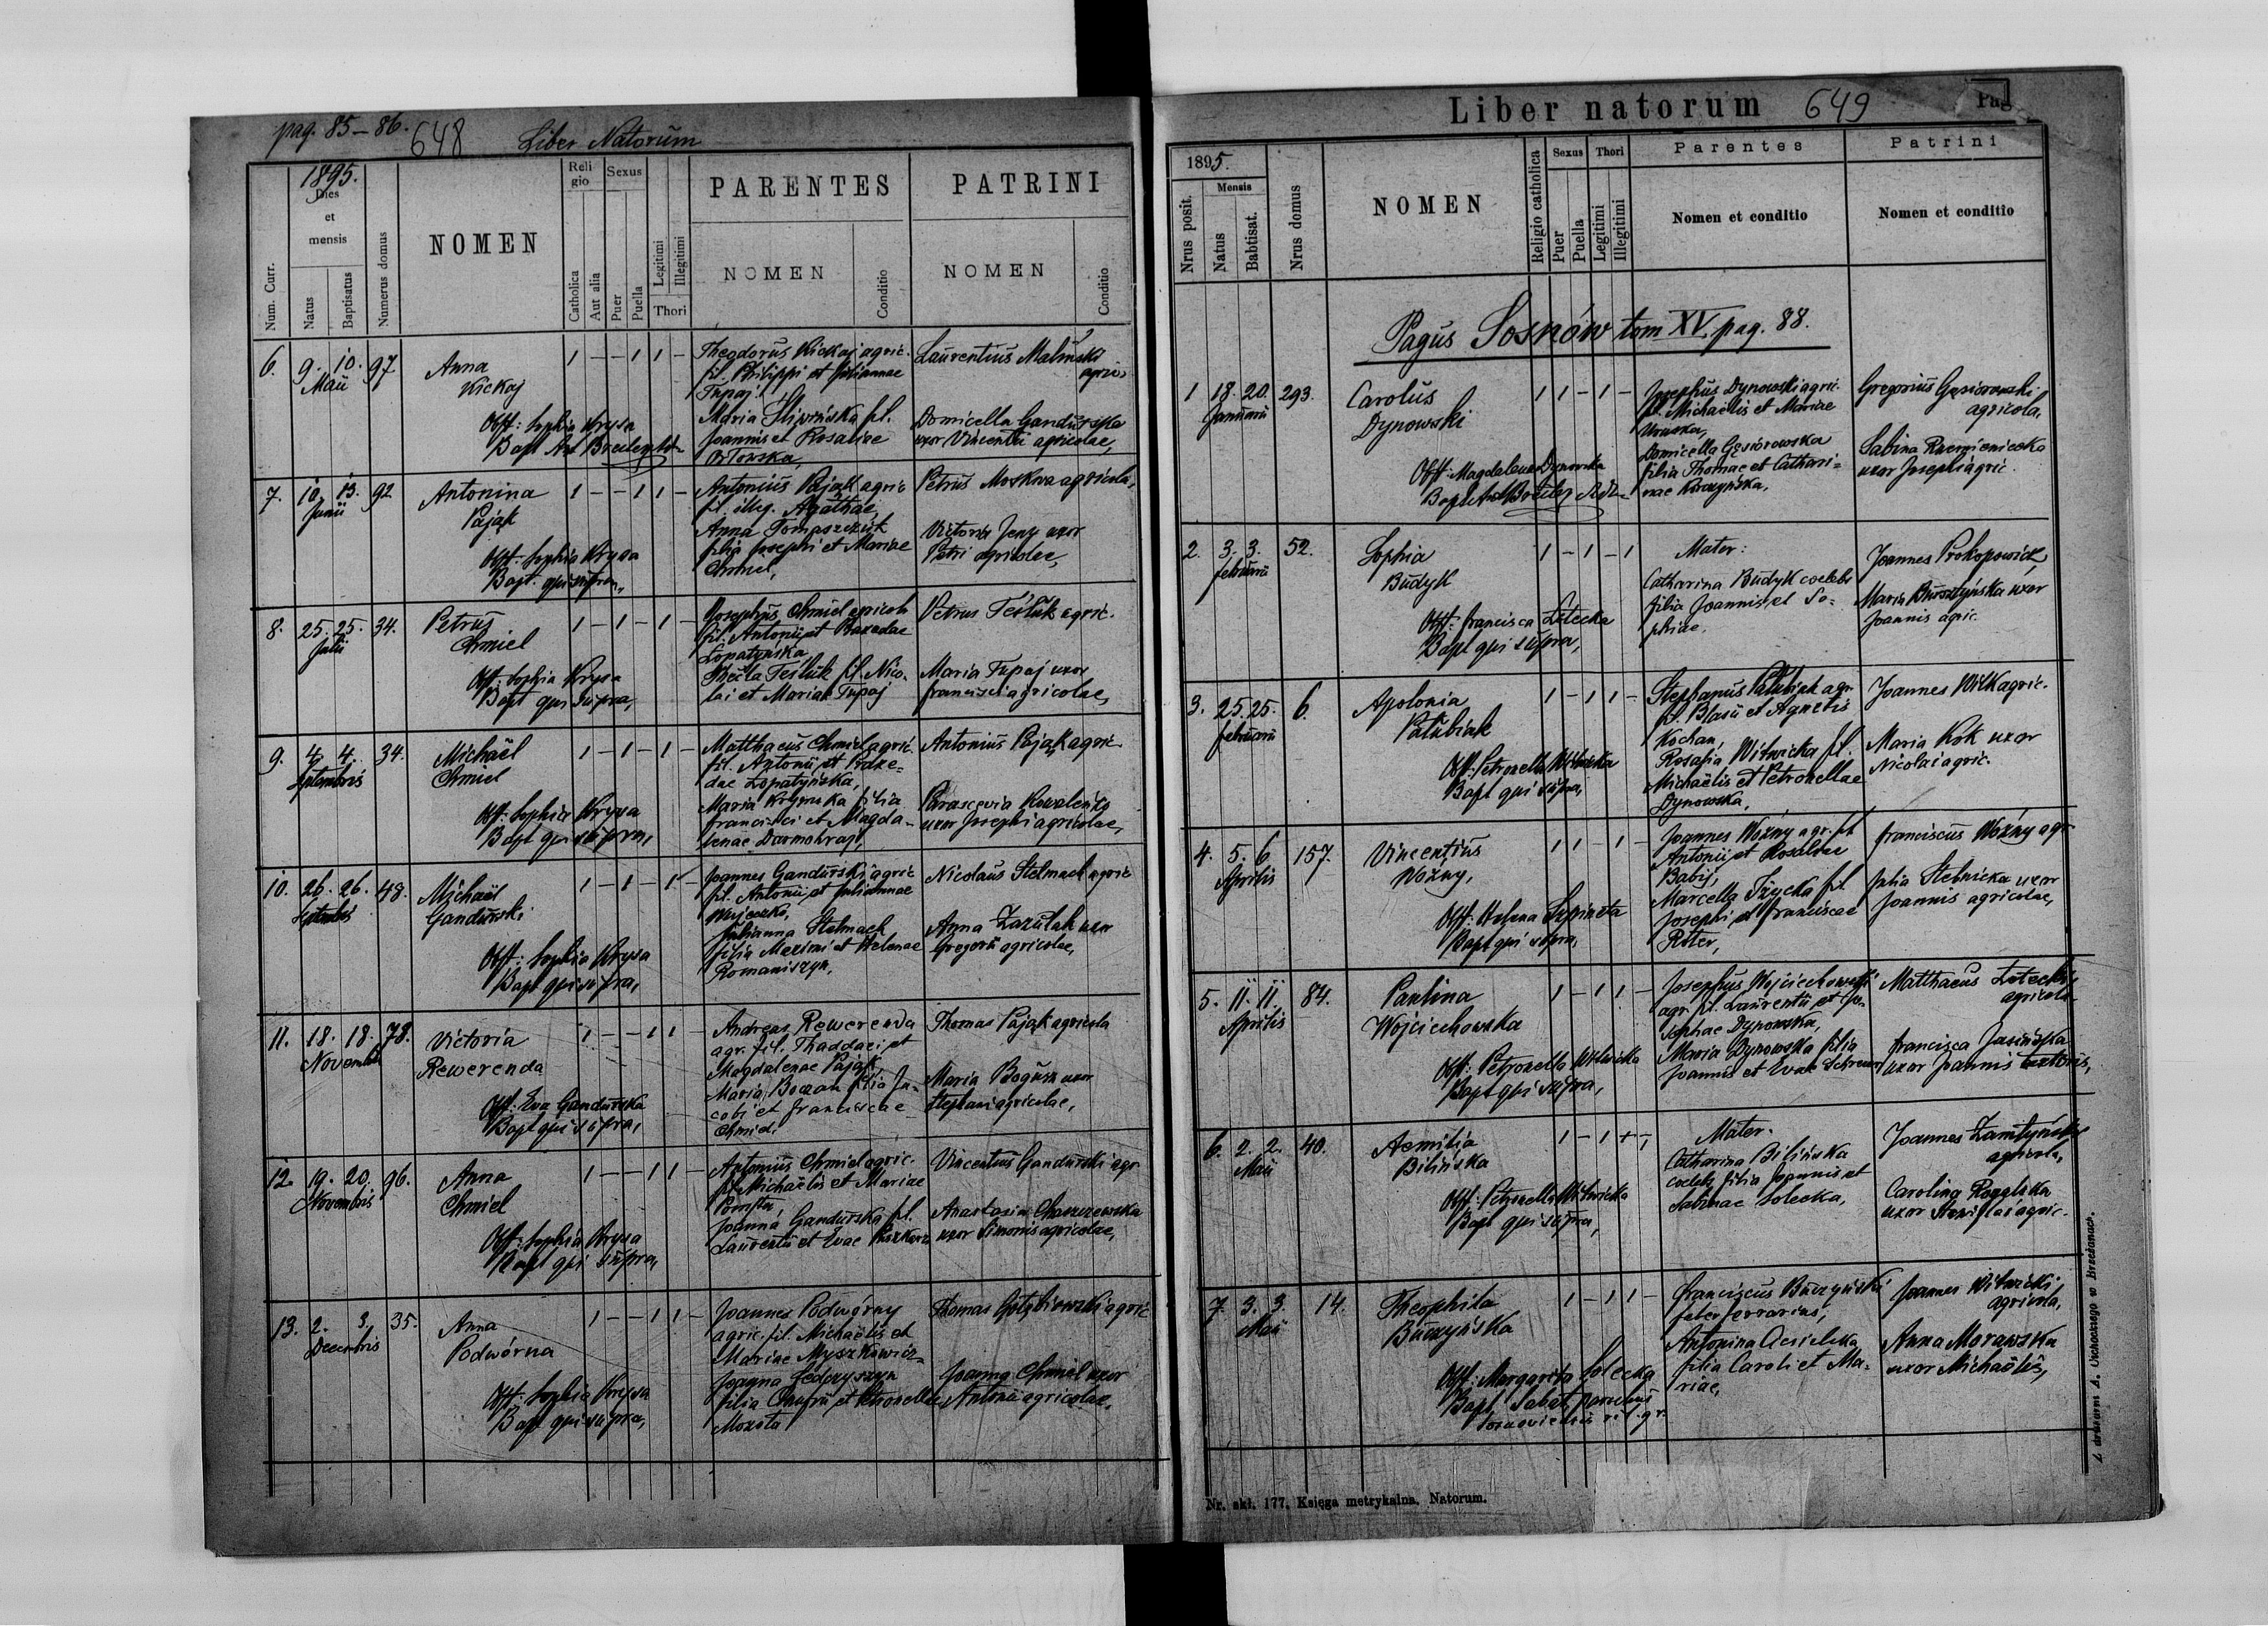 pag. 85-86. 648 Liber Natorum
1895.
Num. Curr.
Dies et mensis
Natus
Baptisatus
Numerus domus
NOMEN
Religio
Catholica
Aut alia
Sexus
Puer
Puella
Legitimi
Illegitimi
Thori
PARENTES
NOMEN
Conditio
PATRINI
NOMEN
Conditio
6. 9. 10. 97 Anna 1 - - 1 1 - Theodorus Kickaj agric. Laurentius Maliński
Maii Kickaj fil. Philippi et Juliannae agric.
Tupaj.
Obst: Sophia Krysa Maria Śliwińska fil. Domicella Gandurska
Bapt Ant Joannis et Rosaliae uxor Vincentii agricolae,
Orłowska,
7. 10. 13. 92 Antonina 1 - - 1 1 - Antonius Pająk agric Petrus Moskwa agricola,
Junii Pająk fil. illeg. Agathae,
Anna Tomaszczuk Victoria Jeny uxor
Obst: Sophia Krysa filia Josephi et Mariae Petri agricolae,
Bapt. qui supra, Chmiel,
8. 25. 25. 34. Petrus 1 - 1 - 1 - Josephus Chmiel agricola Petrus Teśluk agric.
Julii Chmiel fil. Antonii et
Łopatyńska,
Obst: Sophia Krysa Thecla Teśluk fil. Nico- Maria Tupaj uxor
Bapt qui supra, lai et Mariae Tupaj Francisci agricolae,
9. 4. 4. 34. Michaël 1 - 1 - 1 - Matthaeus Chmiel agric. Antonius Pająk agric
Septembris Chmiel fil. Antonii et Praxe-
dae Łopatyńska,
Obst: Sophia Krysa Maria filia Parascevia Kowaleńko
Bapt qui supra, Francisci et Magda- uxor Josephi agricolae,
lenae Darmohraj,
10. 26. 26. 48. Michaël 1 - 1 - 1 - Joannes Gandurski agric Nicolaus Stelmach agric
Septembris Gandurski fil. Antonii et Juliannae
Julianna Stelmach Anna Zazulak uxor
Obst: Sophia Krysa filia Maximi et Helenae Gregorii agricolae,
Bapt qui supra, Romaniszyn,
11. 18. 18. 78. Victoria 1 - - 1 1 - Andreas Rewerenda Thomas Pająk agricola
Novembris Rewerenda agr. fil. Thaddaei et
Magdalenae Pająk,
Obst: Eva Gandurska Maria filia Ja- Maria Bogusz uxor
Bapt qui supra, cobi et Franciscae Stephani agricolae,
Chmiel,
12. 19. 20. 96. Anna 1 - - 1 1 - Antonius Chmiel agric. Vincentius Gandurski agr
Novembris Chmiel fil. Michaëlis et Mariae
Obst: Sophia Krysa Joanna Gandurska fil. Anastasia
Bapt qui supra, Laurentii et Evae uxor Simonis agricolae,
13. 2. 3. 35. Anna 1 - - 1 1 - Joannes Podwórny Thomas Gołębiowski agric
Decembris Podwórna agric. fil. Michaëlis et
Mariae Myszkowicz
Obst: Sophia Krysa Joanna Fedczyszyn Joanna Chmiel uxor
Bapt qui supra, filia Onufrii et Petronellae Antonii agricolae,
Mokata
Liber natorum 649 Pag
1895.
Nrus posit.
Mensis
Natus
Babtisat.
Nrus domus
NOMEN
Religio catholica
Sexus
Puer
Puella
Thori
Legitimi
Illegitimi
Parentes
Nomen et conditio
Patrini
Nomen et conditio
Pagus Sosnów tom XV. pag. 88.
1 18. 20. 293. Carolus 1 1 - 1 - Josephus Dynowski agric. Gregorius Gąsiorowski
Januarii Dynowski fil. Michaëlis et Mariae agricola,
Domicella Gąsiorowska Sabina
Obst: Magdalena Dynowska filia Thomae et Cathari- uxor Josephi agric.
Bapt Ant nae
2. 3. 3. 52. Sophia 1 - 1 - 1 Mater: Joannes Prokopowicz,
Februarii Budyk Catharina Budyk coelebs
filia Joannis et So- Maria Bursztyńska uxor
Obst: Francisca Łotecka phiae. Joannis agric.
Bapt qui supra,
3. 25. 25. 6. Apolonia 1 - 1 1 - Stephanus Patubiak agr Joannes Wilk agric.
Februarii Patubiak fil. Blasii et Agnetis
Kochan,
Obst: Petronella Witwicka Rosalia Witwicka fil. Maria Kok uxor
Bapt qui supra, Michaëlis et Petronellae Nicolai agric.
Dynowska,
4. 5. 6. 157. Vincentius 1 1 - 1 - Joannes Woźny agr. fil Franciscus Woźny agr
Aprilis Woźny, Antonii et Rosaliae
Babij,
Obst: Helena Marcella Tżycka fil. Julia Stebnicka uxor
Bapt qui supra, Josephi et Franciscae Joannis agricolae,
Roter,
5. 11. 11. 84. Paulina 1 - 1 1 - Josephus Wojciechowski Matthaeus Łotecki
Aprilis Wojciechowska agr. fil. Laurentii et Jo- agricola
sephae Dynowska,
Obst: Petronella Witwicka Maria Dynowska filia Francisca Jasińska
Bapt qui supra, Joannis et Evae uxor Joannis
6. 2. 2. 40. Aemilia 1 - 1 Mater. Joannes
Maii Bilińska Catharina Bilińska agricola,
coelebs filia Joannis et
Obst: Petronella Witwicka Sabinae Solecka, Carolina
Bapt qui supra, uxor Stanislai agric.
7. 3. 3. 14. Theophila 1 - 1 1 - Franciscus Buczyński Joannes Witwicki
Maii Buczyńska faber ferrarius, agricola,
Antonina Anna Morawska
Obst: Margarita Solecka filia Caroli et Ma- uxor Michaëlis,
Bapt. Sabat parochus riae,
rit. gr.
Nr. skł. 177. Księga metrykalna. Natorum.
Z drukarni A. Uchackiego w Brzeżanach.